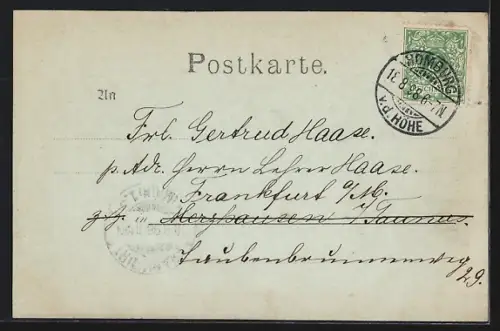 Postkarte.
HOMBURG
18.8.98.6-7N.
v.d. HÖHE
An
Frl. Gertrud Haase.
p. Adr. Herrn Lehrer Haase.
Frankfurt a/M.
in Merzhausen i/Taunus.
Taubenbrunnenweg
29.